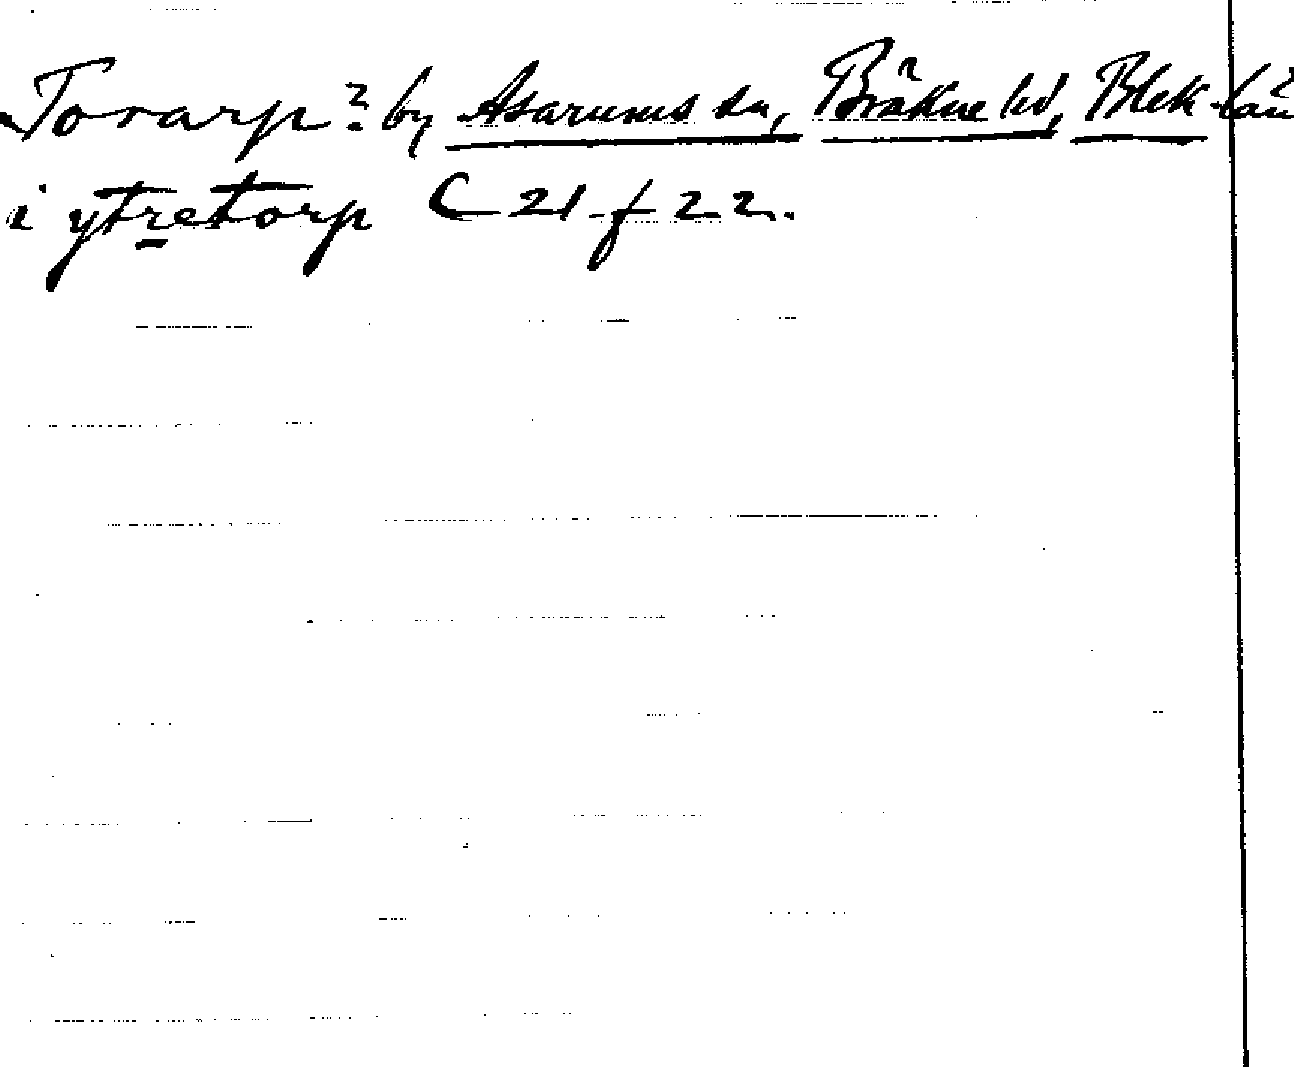 Torarp? by Asarums sn, Bräkne hd, Blek. län
i ytretorp C 21 f 22.